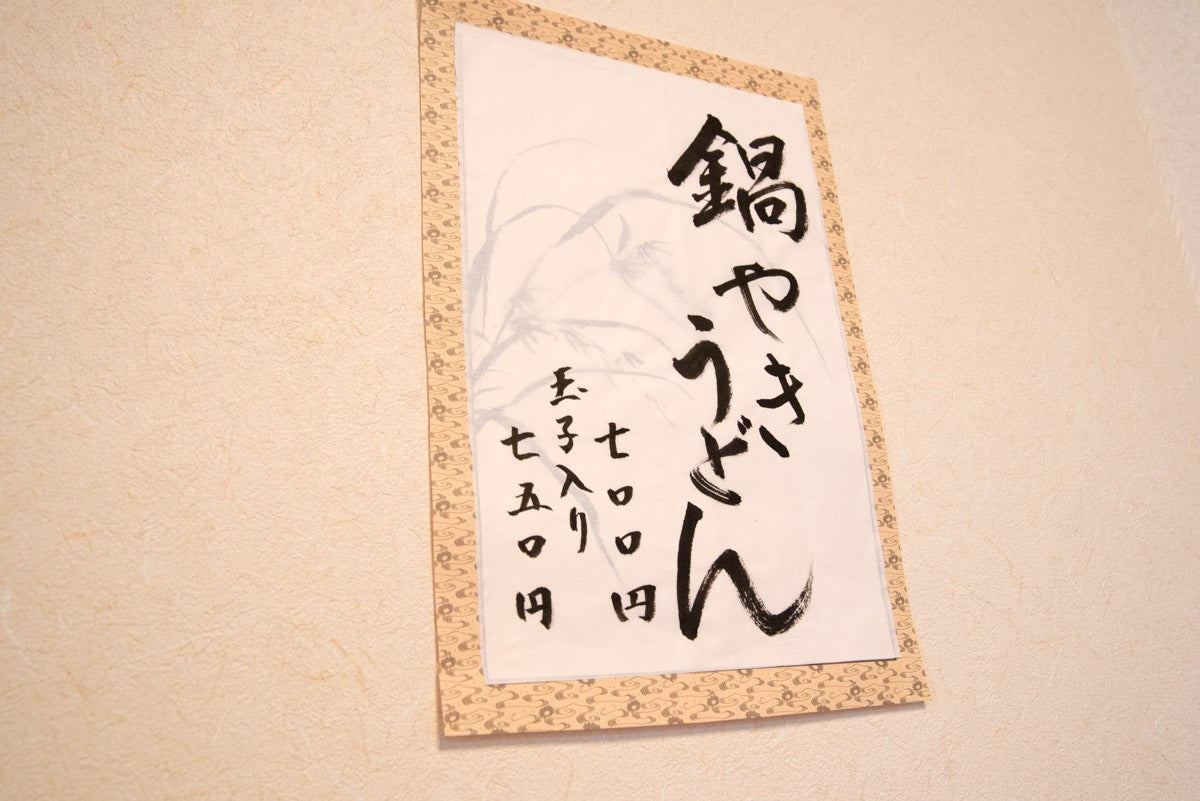 鍋やき
うどん
七〇〇円
玉子入り
七五〇円